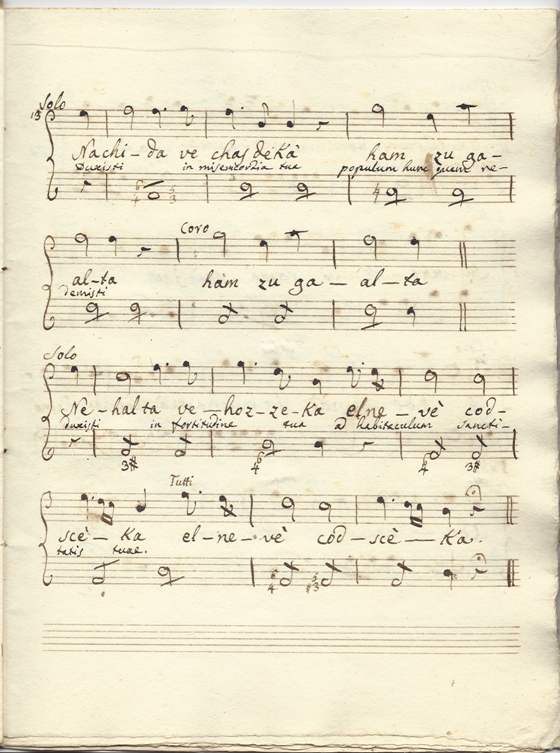 Solo
13
Nachi-da ve chasdeKà ham zu ga-
Duxisti in misericordia tua populum hunc quem re-
6 4 5 3 4
Coro
al-ta ham zu ga-al-ta
demisti
Solo
Ne-halta ve-hoz-ze-Ka elne-vè cod-
duxisti in fortitudine tua ad habitaculum Sancti-
3# 6 4 4 3#
Tutti
scè-Ka el-ne-vè cod-scè-Ka.
tatis tuae.